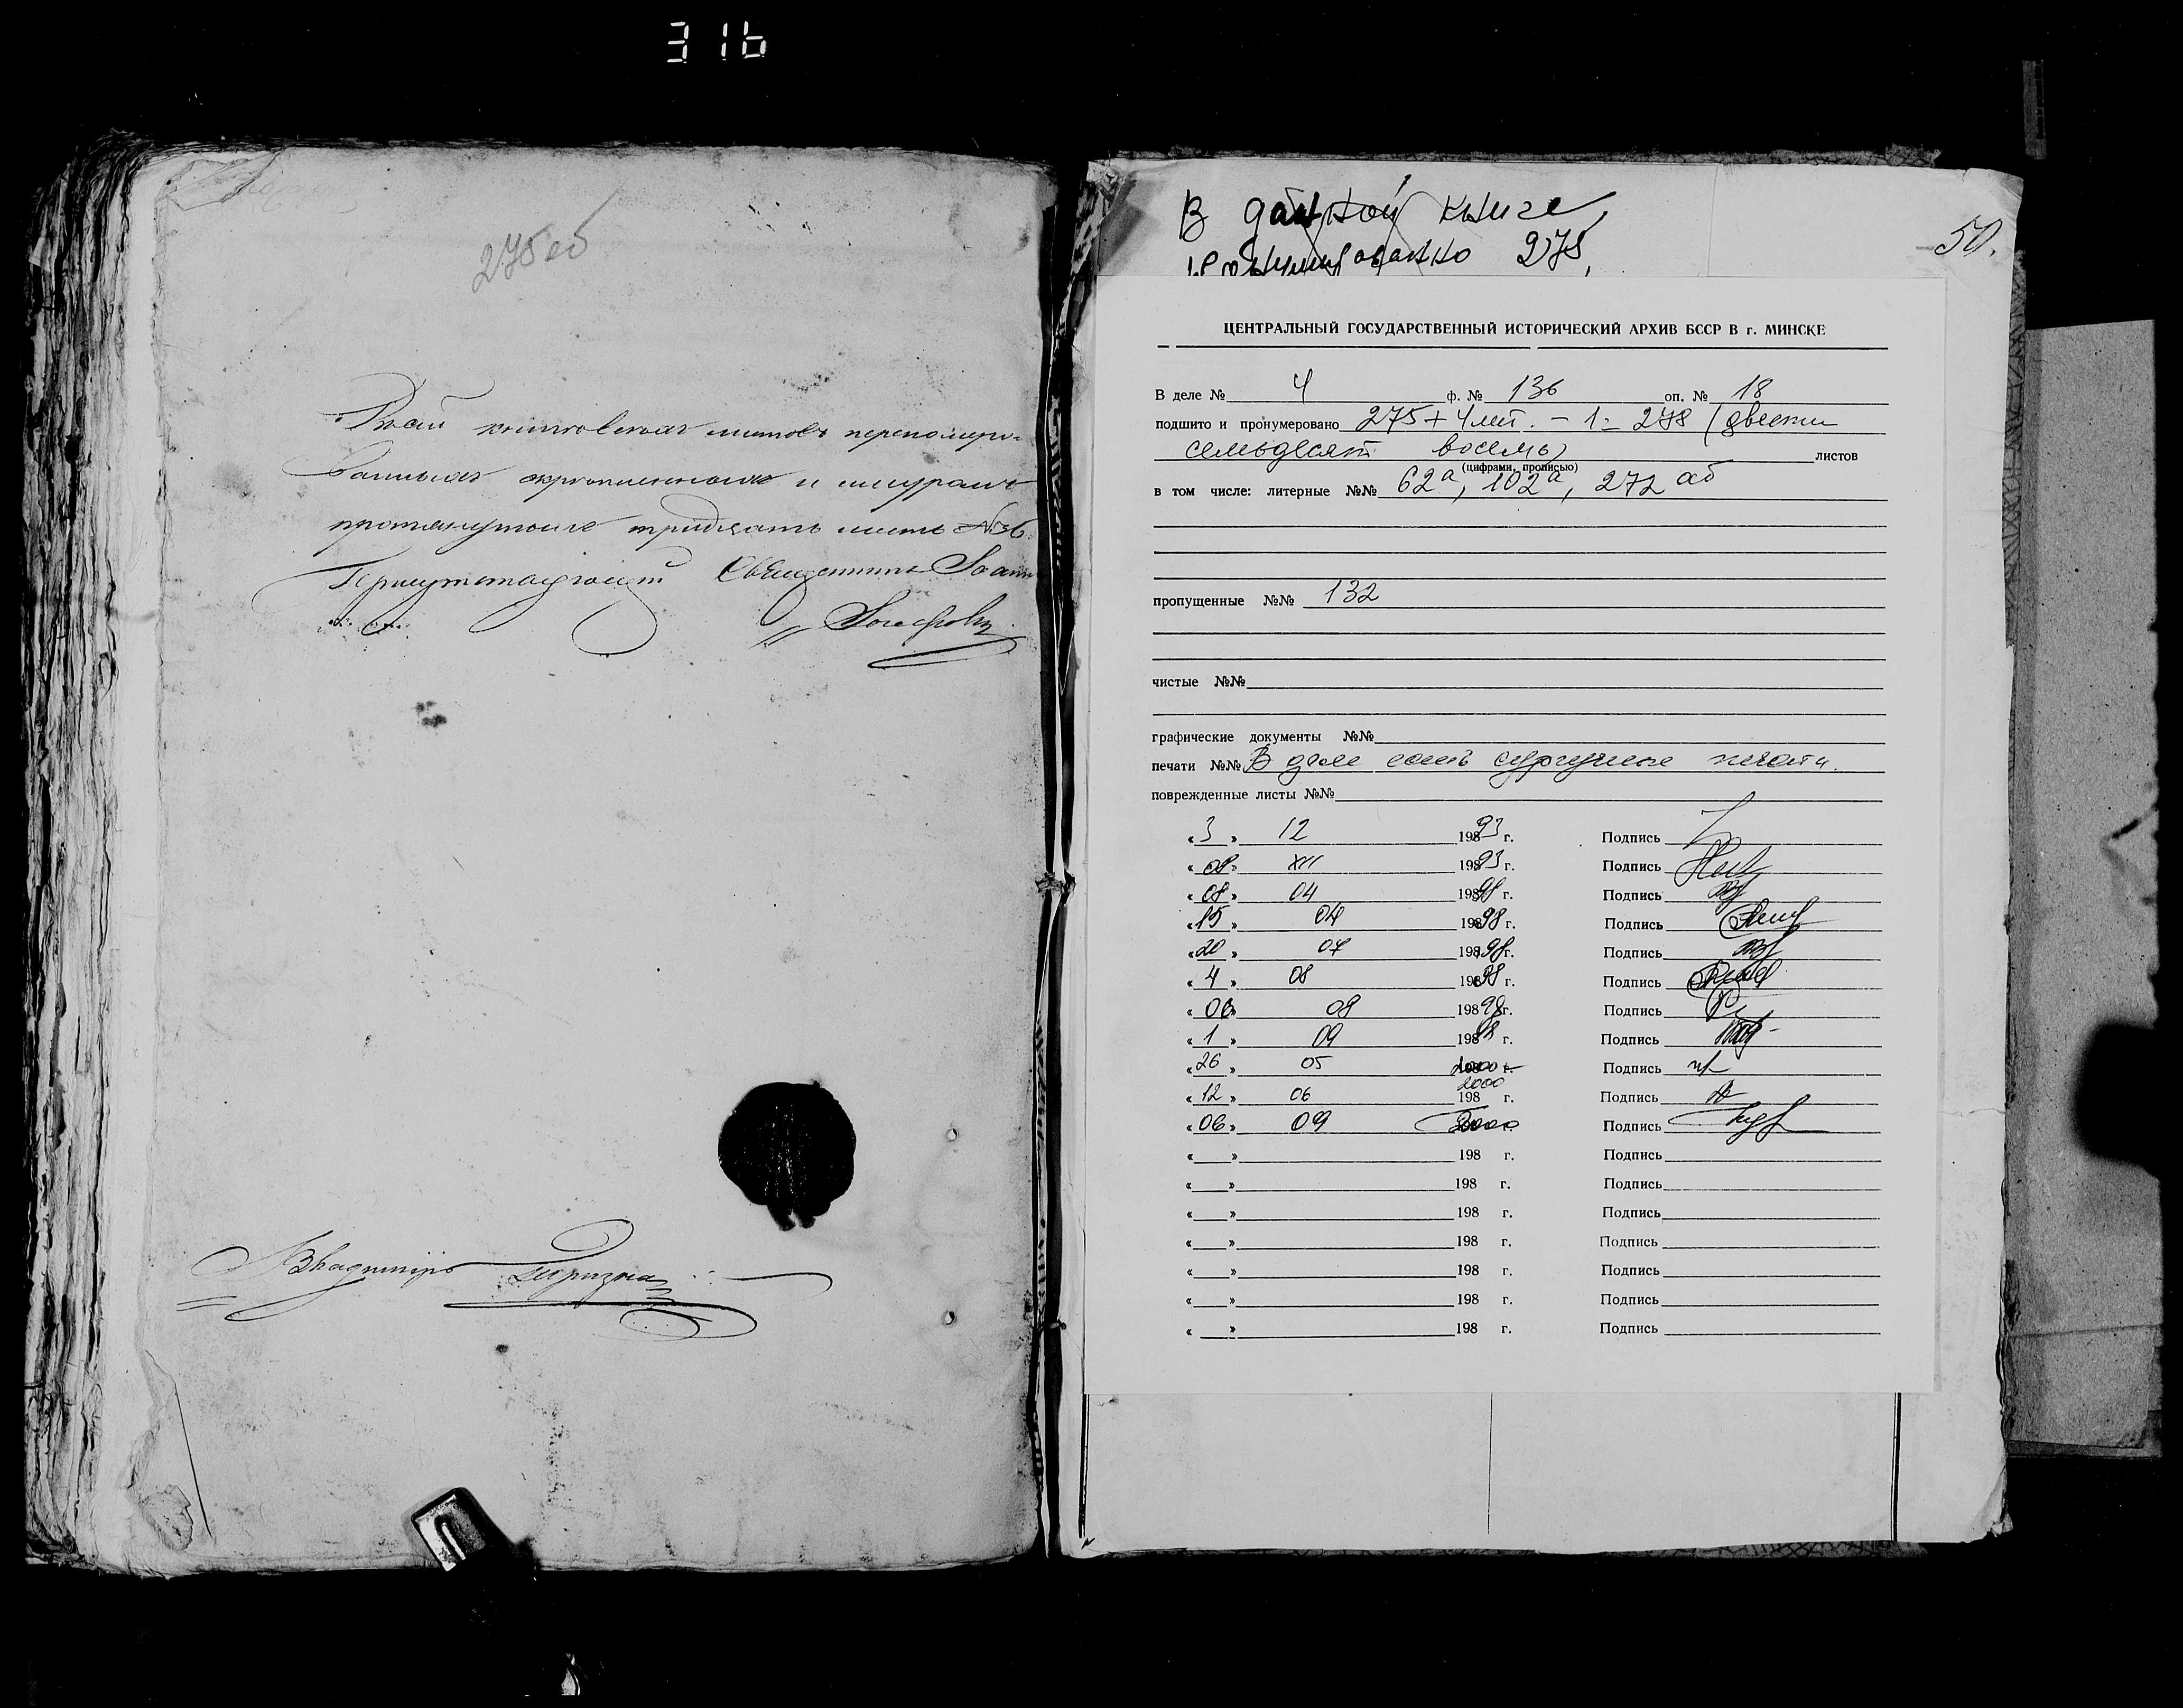 316
275об
Всей книги листовъ перенумеро-
ванныхъ и шнуромъ
тридцать листъ №36
Присутствующий Священникъ Іоаннъ
Владимиръ
В данной книге,
пронумеровано 275,
50.
ЦЕНТРАЛЬНЫЙ ГОСУДАРСТВЕННЫЙ ИСТОРИЧЕСКИЙ АРХИВ БССР В г. МИНСКЕ
В деле № 4 ф. № 136 оп. № 18
подшито и пронумеровано 275 + 4 лит. – 1 = 278 (двести
семьдесят восемь) листов
(цифрами, прописью)
в том числе: литерные №№ 62а, 102а, 272 аб
пропущенные №№ 132
чистые №№
графические документы №№
печати №№ В деле есть сургучные печати.
поврежденные листы №№
« 3 » 12 19893 г. Подпись
« 08 » XII 19893 г. Подпись
« 08 » 04 19898 г. Подпись
« 15 » 04 19898 г. Подпись
« 20 » 07 19898 г. Подпись
« 4 » 08 19898 г. Подпись
« 06 » 08 19898 г. Подпись
« 1 » 09 19898 г. Подпись
« 26 » 05 2000 г. Подпись
« 12 » 06 2000 198 г. Подпись
« 06 » 09 2000 г. Подпись
« » 198 г. Подпись
« » 198 г. Подпись
« » 198 г. Подпись
« » 198 г. Подпись
« » 198 г. Подпись
« » 198 г. Подпись
« » 198 г. Подпись